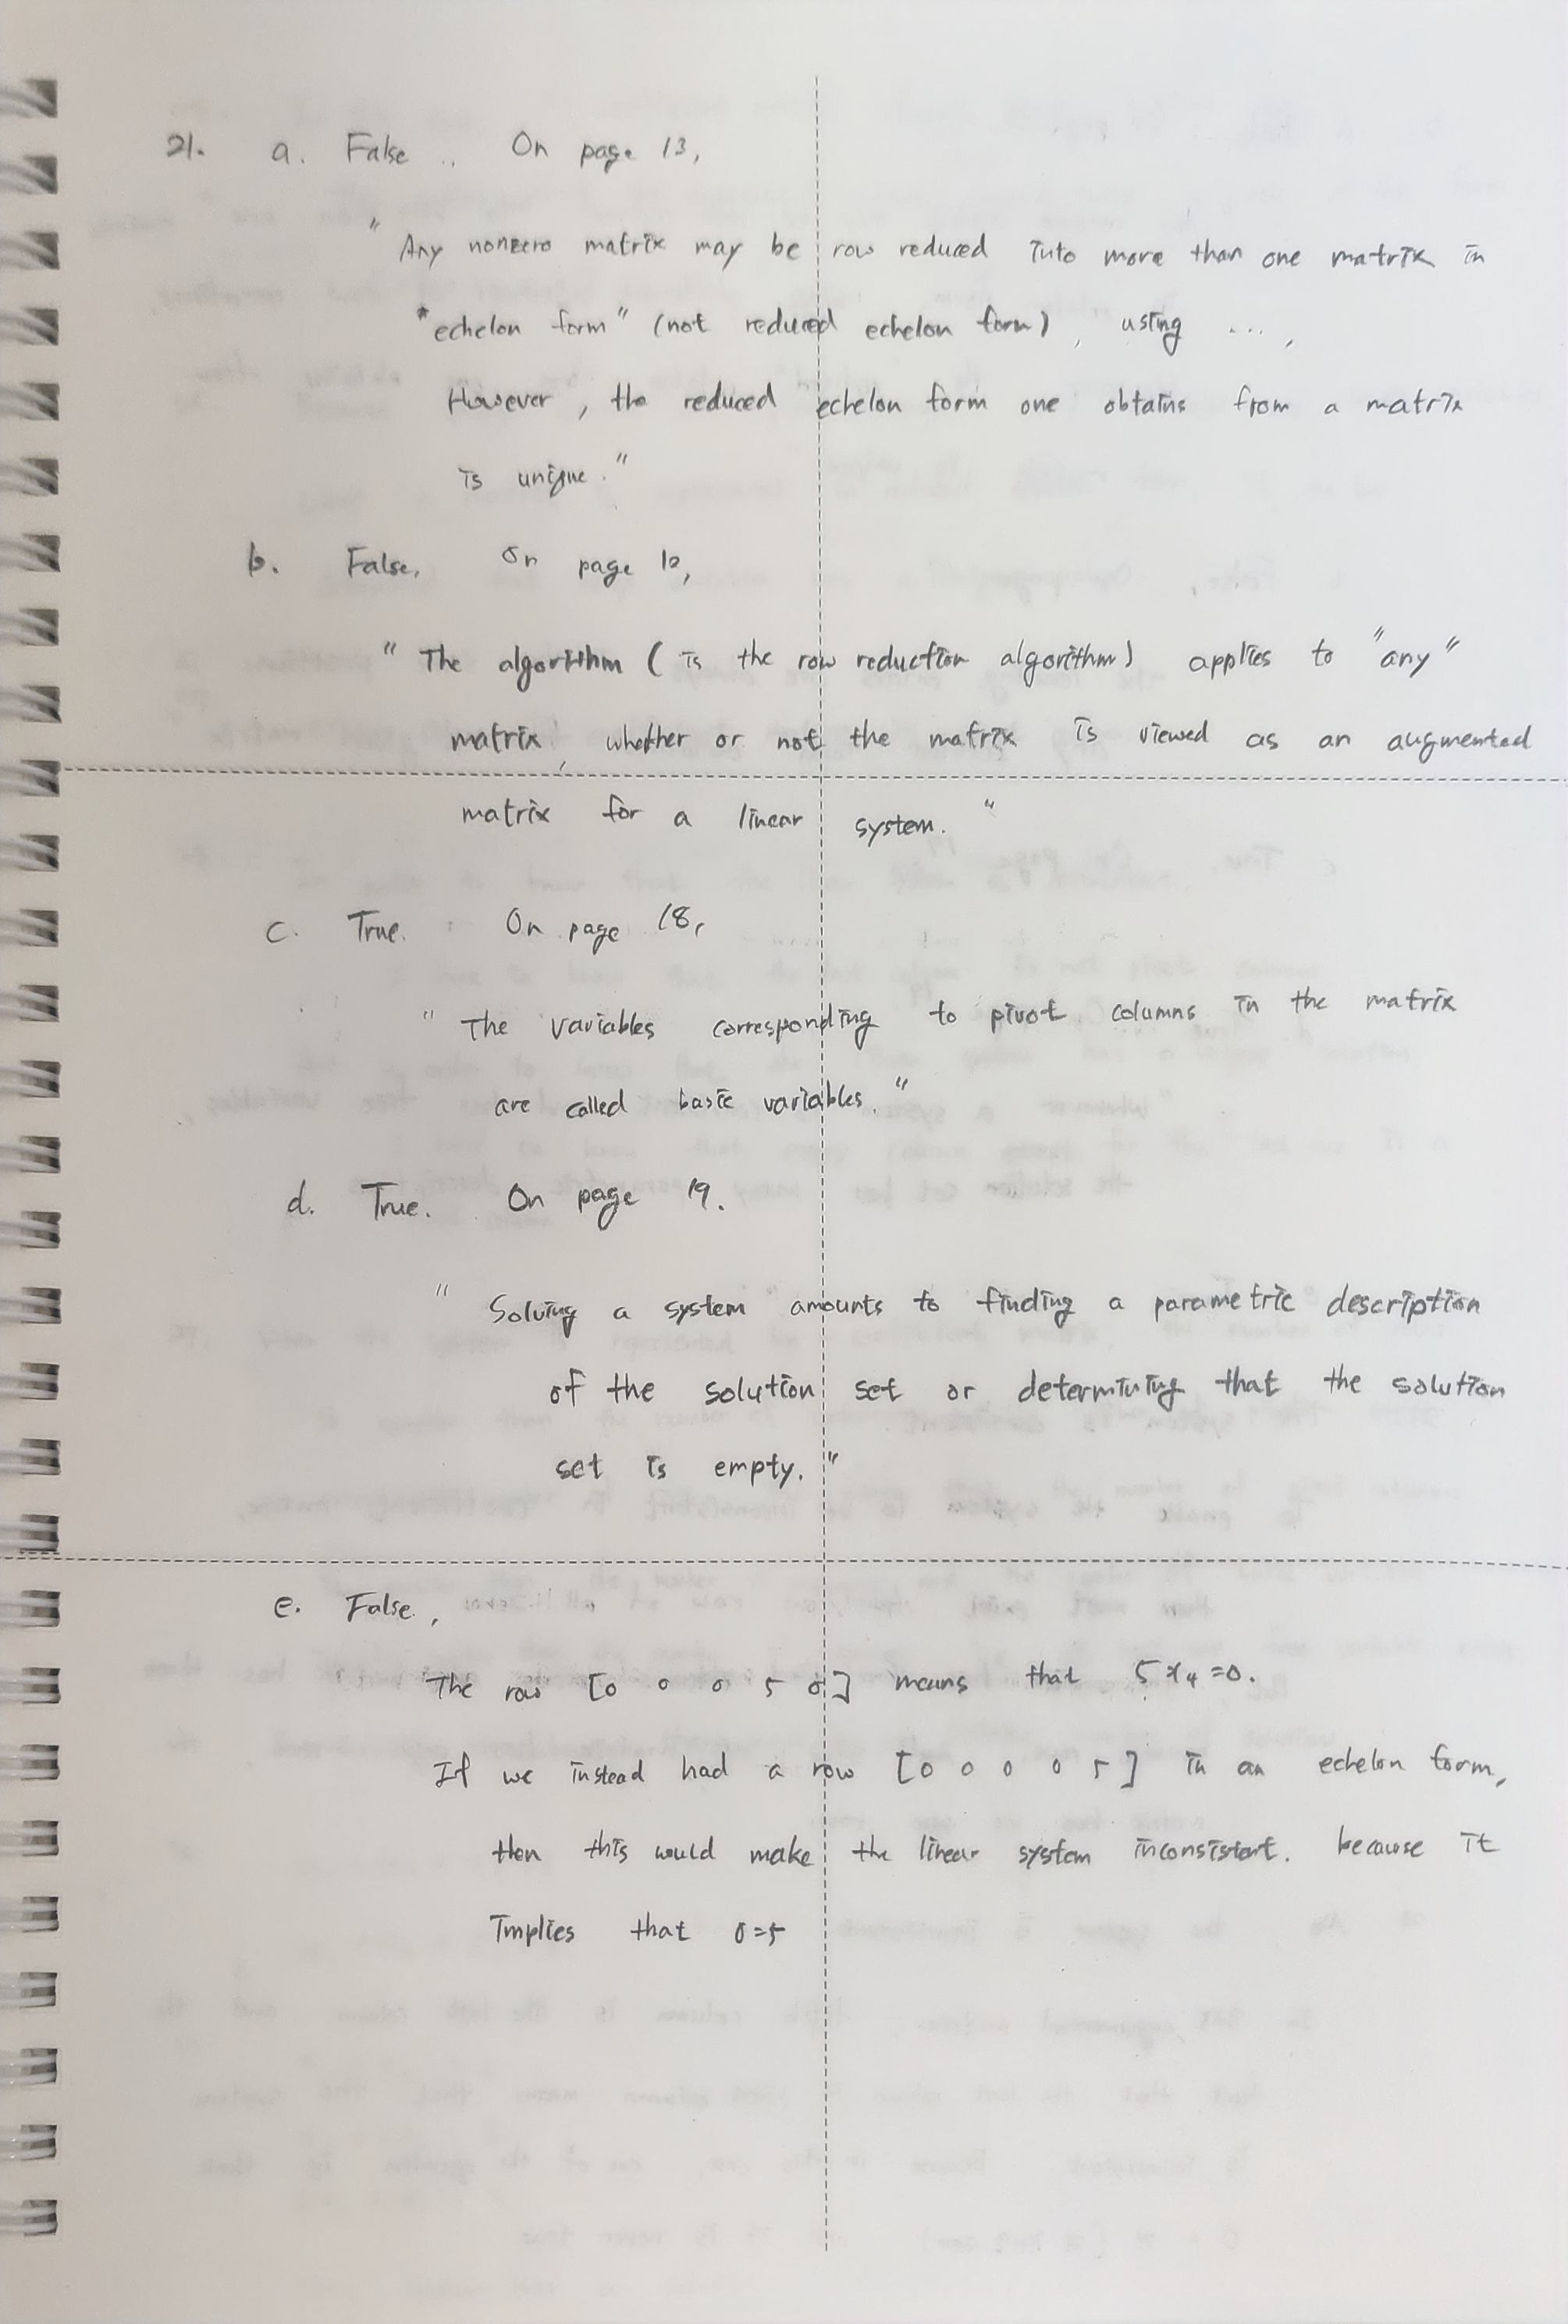 21. a. False .. On page 13,
"Any nonzero matrix may be row reduced into more than one matrix in
"echelon form" (not reduced echelon form), using ...,
However, the reduced echelon form one obtains from a matrix
is unique."
b. False, On page 12,
"The algorithm (is the row reduction algorithm) applies to "any"
matrix, whether or not the matrix is viewed as an augmented
matrix for a linear system."
c. True. On page 18,
"The variables corresponding to pivot columns in the matrix
are called basic variables."
d. True. On page 19.
"Solving a system amounts to finding a parametric description
of the solution set or determining that the solution
set is empty."
e. False,
The row [0 0 0 5 0] means that 5x₄=0.
If we instead had a row [0 0 0 0 5] in an echelon form,
then this would make the linear system inconsistent. because it
implies that 0=5